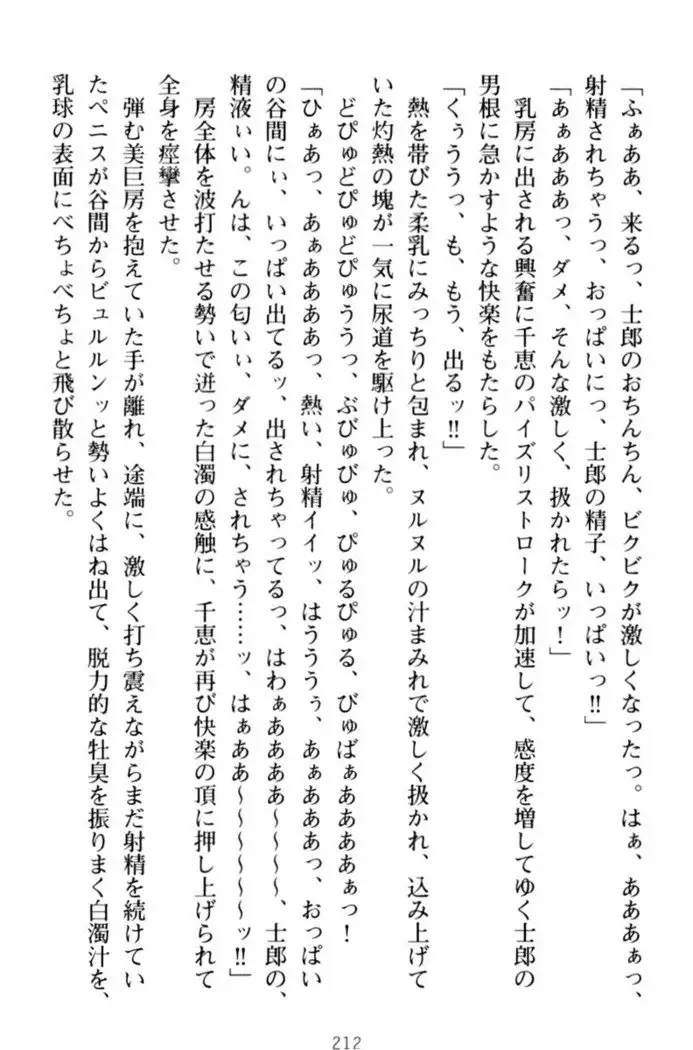 「ふぁああ、来るっ、士郎のおちんちん、ビクビクが激しくなったっ。はぁ、あああぁっ、
射精されちゃうっ、おっぱいにっ、士郎の精子、いっぱいっ!!」
「あぁあああっ、ダメ、そんな激しく、扱かれたらッ!」
乳房に出される興奮に千恵のパイズリストロークが加速して、感度を増してゆく士郎の
男根に急かすような快楽をもたらした。
「くぅううっ、も、もう、出るッ!!」
熱を帯びた柔乳にみっちりと包まれ、ヌルヌルの汁まみれで激しく扱かれ、込み上げて
いた灼熱の塊が一気に尿道を駆け上った。
どぴゅどぴゅどぴゅううっ、ぶびゅびゅ、ぴゅるぴゅる、びゅばぁああああぁっ!
「ひぁあっ、あぁああああっ、熱い、射精イイッ、はうううぅ、あぁあああっ、おっぱい
の谷間にぃ、いっぱい出てるッ、出されちゃってるっ、はわぁああああ~~~~、士郎の、
精液ぃい。んは、この匂いぃ、ダメに、されちゃう……ッ、はぁああ~~~~~~ッ!!」
房全体を波打たせる勢いで迸った白濁の感触に、千恵が再び快楽の頂に押し上げられて
全身を痙攣させた。
弾む美巨房を抱えていた手が離れ、途端に、激しく打ち震えながらまだ射精を続けてい
たペニスが谷間からビュルルンッと勢いよくはね出て、脱力的な牡臭を振りまく白濁汁を、
乳球の表面にべちょべちょと飛び散らせた。
212